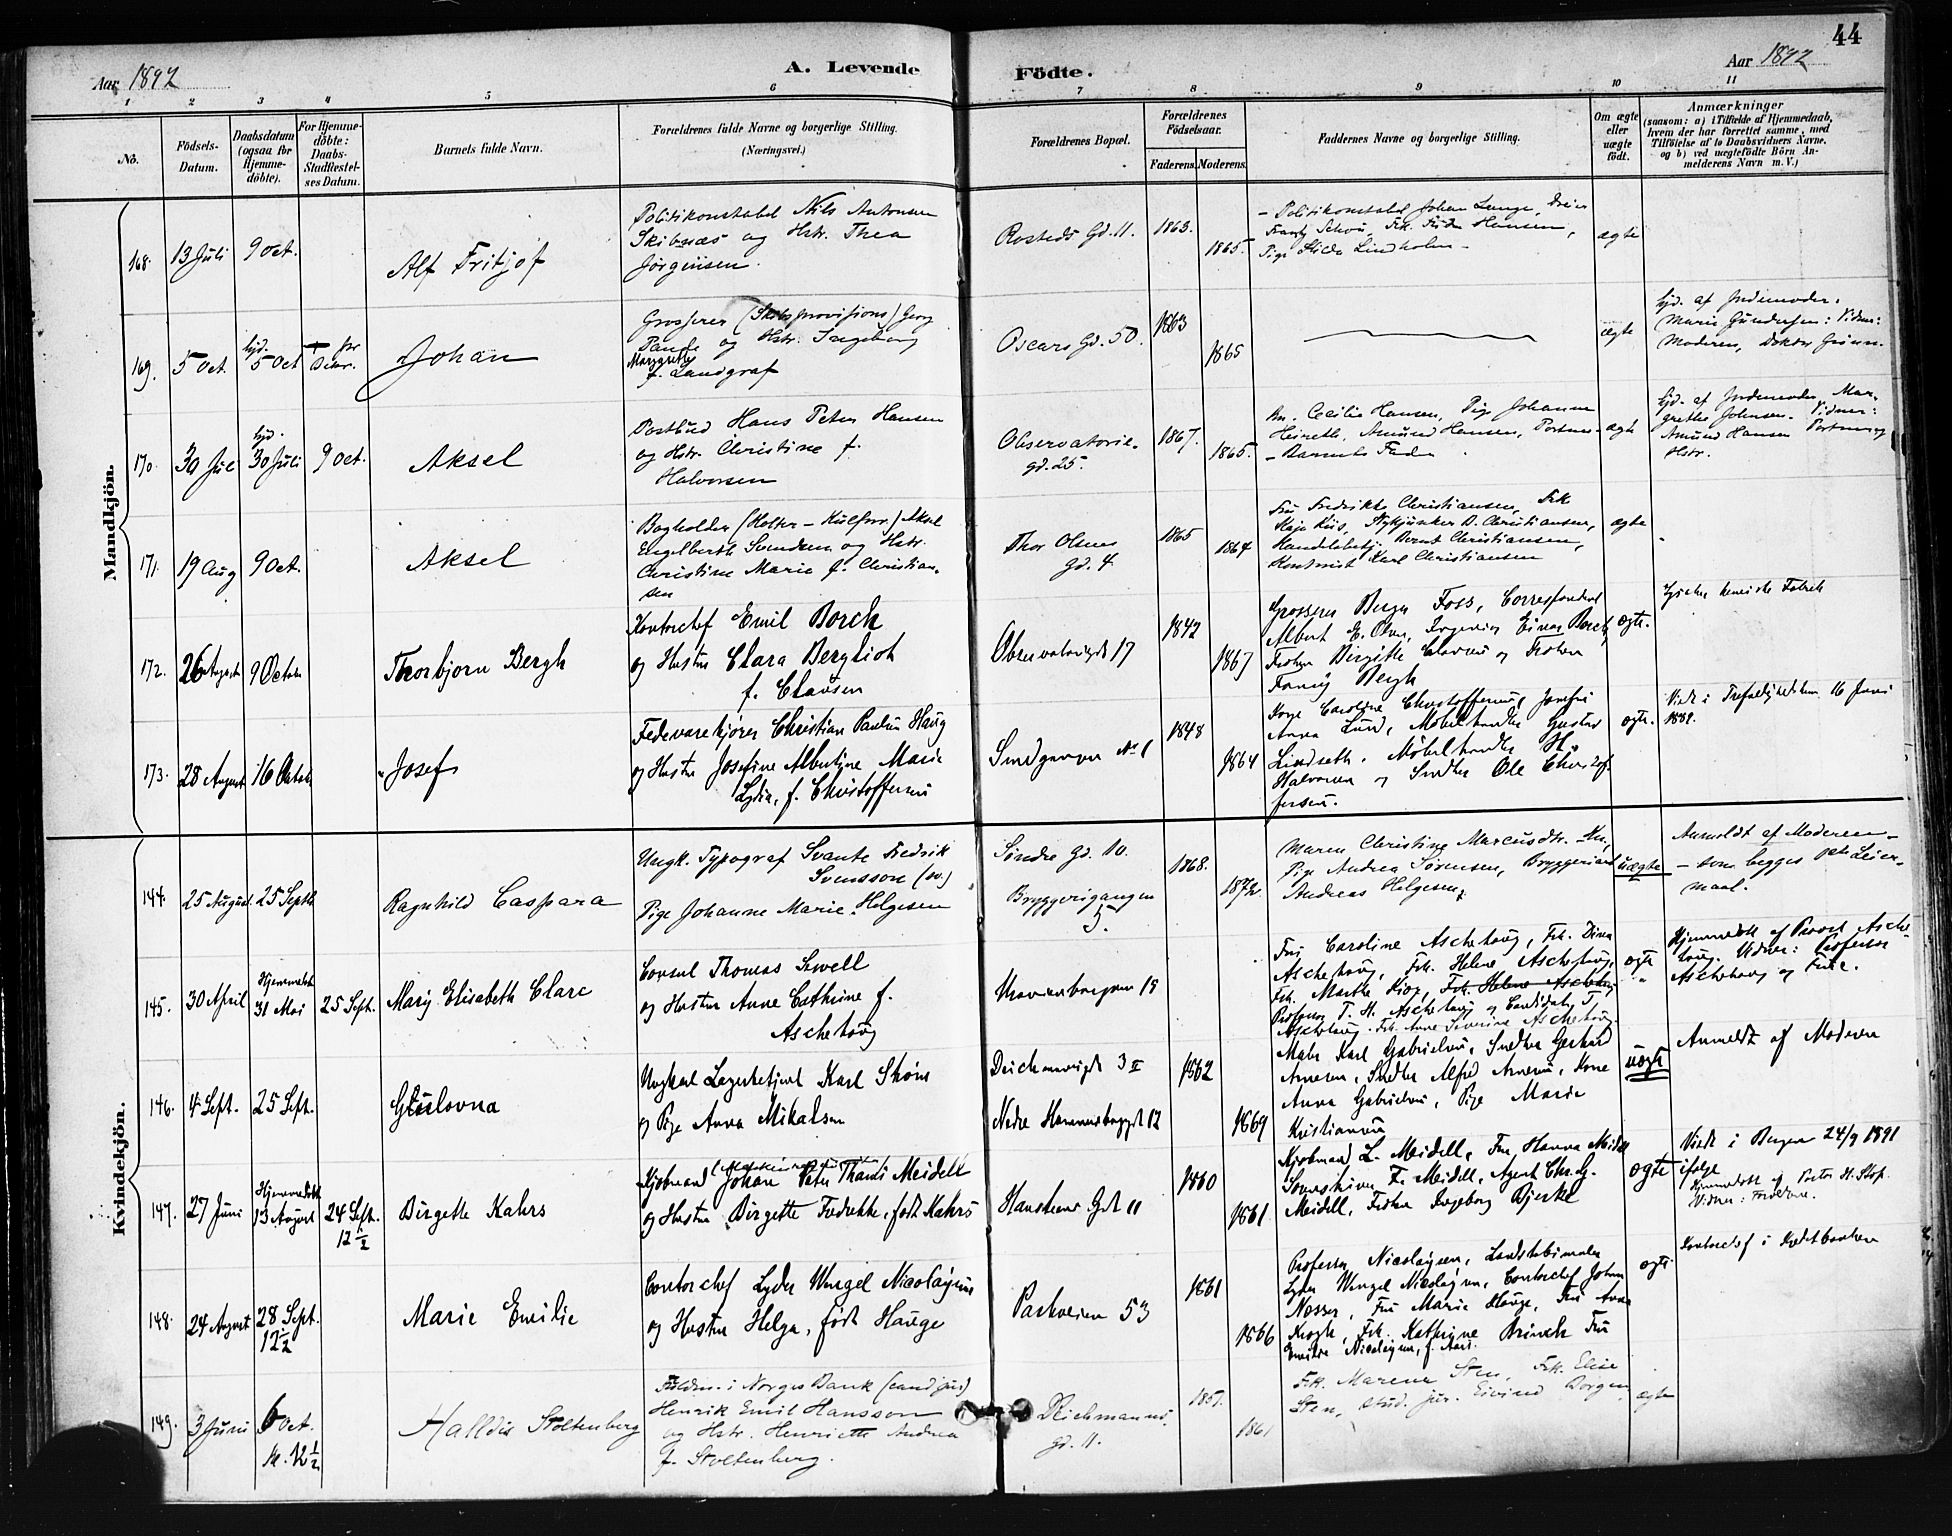 44
Aar 1892
A. Levende
Födte.
Aar 1892
1 2 3 4 5 6 7 8 9 10 11
No.
Födsels-
Datum.
Daabsdatum
(ogsaa for
Hjemme-
döbte).
For Hjemme-
döbte:
Daabs-
Stadfæstel-
ses Datum.
Barnets fulde Navn.
Forældrenes fulde Navne og borgerlige Stilling.
(Næringsvei.)
Forældrenes Bopæl.
Forældrenes
Födselsaar.
Faderens. Moderens.
Faddernes Navne og borgerlige Stilling.
Om ægte
eller
uægte
födt.
Anmærkninger
(saasom: a) i Tilfælde af Hjemmedaab,
hvem der har forrettet samme, med
Tilföielse af to Daabsvidners Navne,
og b) ved uægtefödte Börn An-
melderens Navn m. V.)
Mandkjön.
168. 13 Juli 9 Oct.
Alf Fritjof
Politikonstabel Nils Antonsen
Skibnæs og Hstr. Thea
Jörgensen.
Rosteds Gd. 11. 1863. 1865.
- Politikonstabel Johan Lange, Dreier
Pige Hilda Lindholm -
ægte
169. 5 Oct. hjd. 5 Oct
Johan
Grosserer (Skibsprovisions) Georg
Pande og Hstr. Ingeborg
Margrethe
f. Landgraf
Oscars Gd. 50. 1863 1865
ægte
hjd. af Jordemoder
Marie Gundersen: Vidner:
Moderen, Doktor Grönn.
170. 30 Juli hjd. 30 Juli 9 Oct.
Aksel
Postbud Hans Peter Hansen
og Hstr. Christine f.
Halvorsen
Observatorie-
gd. 25. 1867. 1865.
Cecilie Hansen, Pige Johanne
Amund Hansen, Portner
- Barnets Fader
ægte
hjd. af Jordemoder Mar-
grethe Johnsen. Vidner:
Amund Hansen Portner og
Hstr.
171. 19 Aug 9 Oct.
Aksel
Bogholder (Holter - Kulforr.) Aksel
Engelbreth Svendsen og Hstr.
Christine Marie f. Christian-
sen
Thor Olsens
Gd. 4 1865 1864
Fru Fredrikke Christiansen, Frk
Kaja Riis, Styrjunker B. Christiansen,
Handelsbetj. Bernt Christiansen,
Kontorist Karl Christiansen
ægte
172. 26 August 9 October
Thorbjorn Bergh
Kontorchef Emil Borch
og Hustru Clara Bergliot
f. Clausen
Observatorigd 17 1842 1867
Grosserer Berger Foss, Correspondent
Albert E. Olsen, Ingeniør Einar Borch,
Frøken Birgitte Clausen og Frøken
Fanny Bergh
ægte.
173. 28 August 16 October
Josef
Fedevarekjører Christian Paulsen Haug
og Hustru Josefine Albertine Marie
Lydia, f. Christoffersen
Smedgangen No 1 1848 1864
Kone Caroline Christoffersen, Jomfru
Anna Lund, Møbelhandler Gustav
Lindseth, Møbelhandler H.
Halvorsen og Snedker Ole Christof-
fersen.
ægte.
Viede i Trefoldighedskirken 16 Juni
Kvindekjön.
144. 25 August 25 Septb
Ragnhild Caspara
Ungk. Typograf Svante Fredrik
Svensson (sv.)
Pige Johanne Marie Helgesen
Söndre Gd. 10.
Bryggerigangen
5. 1868. 1872.
Maren Christine Marcusdtr. - Kn,
Pige Andrea Sørensen, Bryggeriarb
Andreas Helgesen
uægte
Anmeldt af Moderen -
- som begges 1ste Leier-
maal.
145. 30 April Hjemmedøbt 31 Mai 25 Sept.
Mary Elisabeth Clare
Consul Thomas Sewell
og Hustru Anna Cathrine f.
Aschehoug
Uranienborgveien 15
Fru Caroline Aschehoug, Frk. Dina
Aschehoug, Frk. Helene Aschehoug,
Frk. Marthe Kiær, Frk. Helene Aschehoug
Professor T. H. Aschehoug og Candidat T.
Aschehoug. Frk. Anne Severine Aschehoug.
ægte
Hjemmedøbt af Provst Asche-
houg. Vidner: Professor
Aschehoug og Frue.
146. 4 Sept. 25 Sept.
Ungkarl Lagerbetjent Karl Strøm
og Pige Anna Mikalsen
Deichmansgd 3 II
Nedre Hammersborggd 12 1862 1869
Maler Karl Gabrielsen, Snedker Gerhard
Arnesen, Snedker Alfred Arnesen, Kone
Anna Gabrielsen, Pige Marie
Kristiansen
uægte
Anmeldt af Moderen
147. 27 Juni Hjemmedøbt 13 August 24 Sept. 12 1/2
Birgette Kahrs
Kjøbmand Johan Peter Thams Meidell
og Hustru Birgette Fredrikke, født Kahrs
Hansteens Gd. 11 1860 1861
Kjøbmand L. Meidell, Fru Hanna Meidell
Sorenskriver Fr. Meidell, Agent Chr. G.
Meidell, Frøken Ingeborg Bjerke
ægte
Viede i Bergen 24/9 1891
ifølge
Vidner: Forældrene.
148. 24 August 28 Sept. 12 1/2
Marie Emilie
Contorchef Lyder Wengel Nicolaysen
og Hustru Helga, født Hauge
Parkveien 53 1861 1866
Professor Nicolaysen, Landstabsmaler
Lyder Wengel Nicolaysen, Contorchef Johan
Nosser, Fru Marie Hauge, Fru Anna
Krogh, Frk. Kathrine Brinch Fru
Emilie Nicolaysen, f. Aars.
ægte
Kontorchef i Kreditbanken
149. 3 Juni 6 Oct. kl. 12 1/2
Halldis Stoltenberg
Fuldm. i Norges Bank (cand jur)
Henrik Emil Hansson
og Hstr. Henriette Andrea
f. Stoltenberg.
Deichmans
gd. 11. 1857. 1861
Frk. Marena Sten, Frk. Elise
Sten, stud. jur. Eivind Borgen
ægte